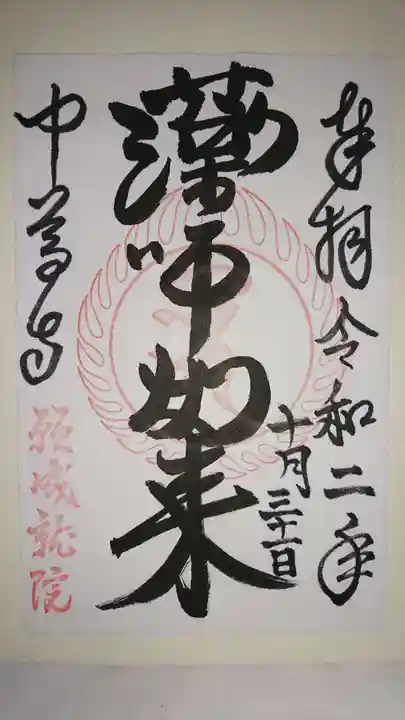 奉拝令和二年
十月三十一日
薬師如来
中尊寺
願成就院